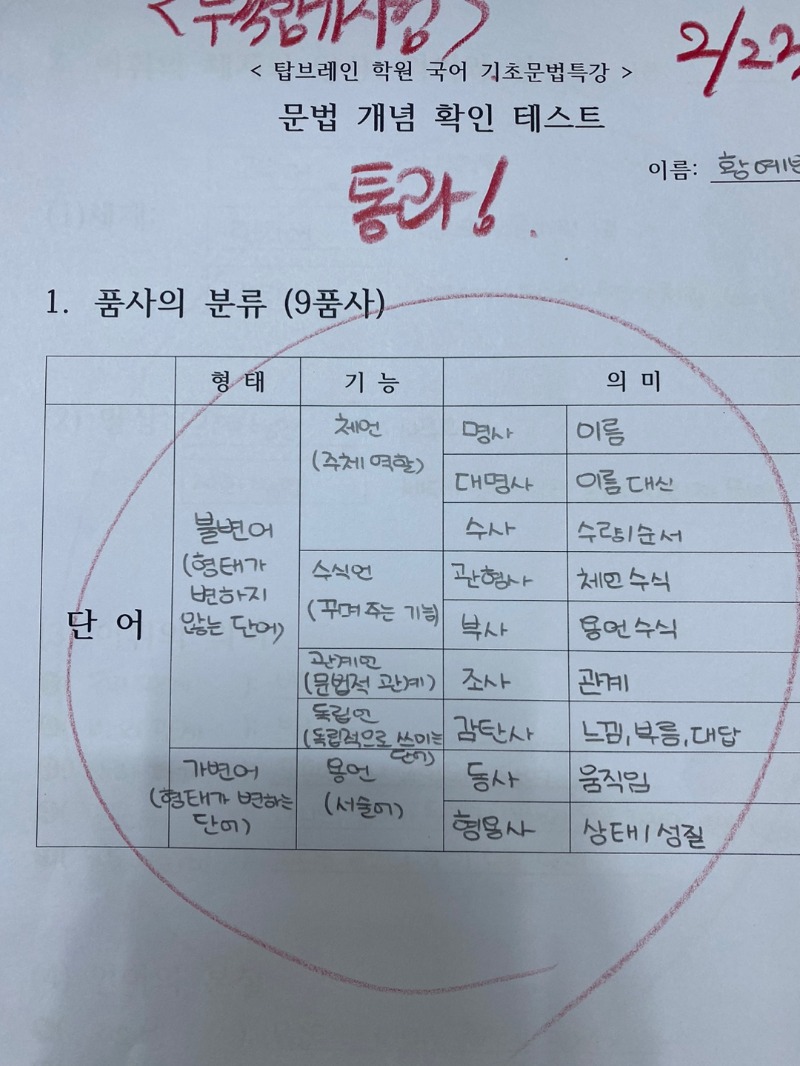 <무작합격시험>
2/22
< 탑브레인 학원 국어 기초문법특강 >
문법 개념 확인 테스트
이름: 황예
통과!
1. 품사의 분류 (9품사)
형태 기능 의미
단어
불변어
(형태가
변하지
않는 단어)
체언
(주체 역할)
명사 이름
대명사 이름 대신
수사 수량/순서
수식언
(꾸며 주는 기능)
관형사 체언 수식
부사 용언 수식
관계언
(문법적 관계)
조사 관계
독립언
(독립적으로 쓰이는
단어)
감탄사 느낌, 부름, 대답
가변어
(형태가 변하는
단어)
용언
(서술어)
동사 움직임
형용사 상태/성질